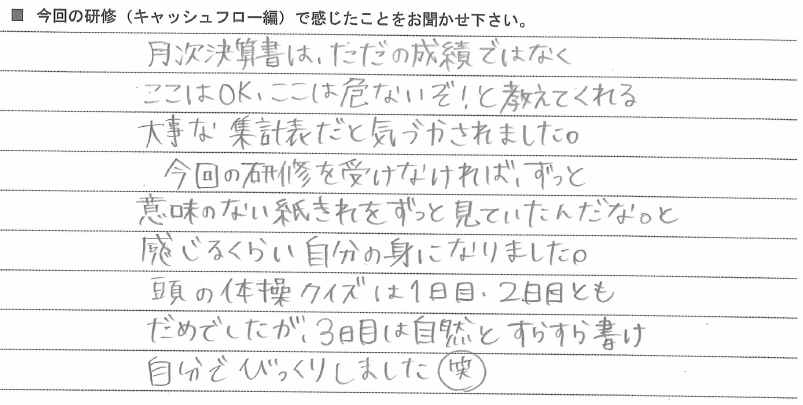 ■ 今回の研修（キャッシュフロー編）で感じたことをお聞かせ下さい。
月次決算書は、ただの成績ではなく
ここはOK、ここは危ないぞ！と教えてくれる
大事な集計表だと気づかされました。
今回の研修を受けなければ、ずっと
意味のない紙きれをずっと見ていたんだな。と
感じるくらい自分の身になりました。
頭の体操クイズは1日目、2日目とも
だめでしたが、3日目は自然とすらすら書け
自分でびっくりしました（笑）